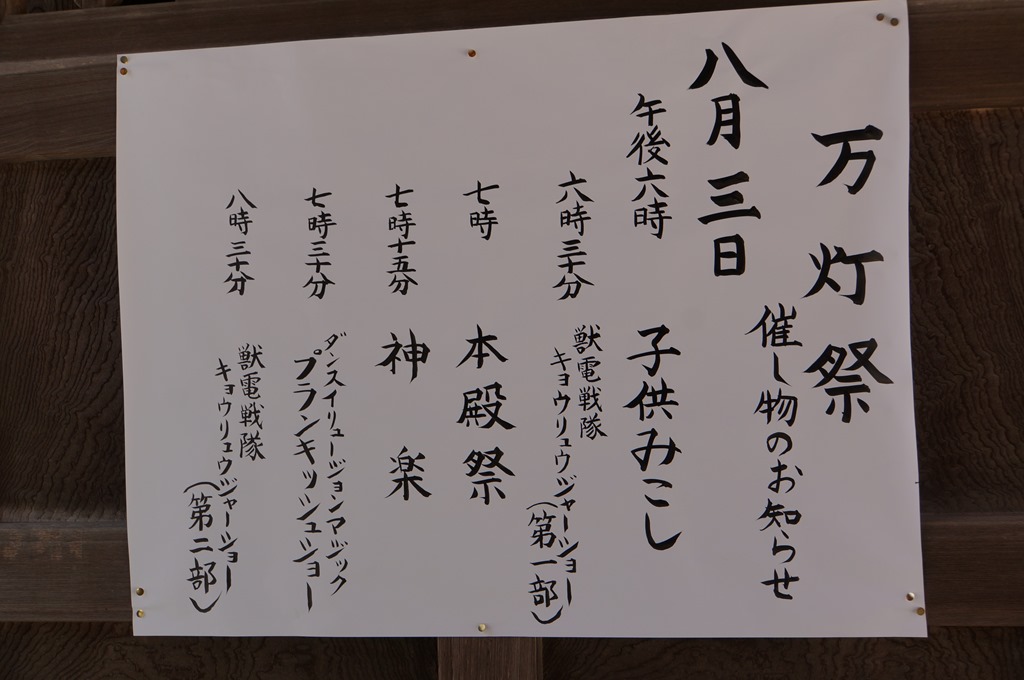 万灯祭
催し物のお知らせ
八月三日
午後六時 子供みこし
六時三十分 獣電戦隊
キョウリュウジャーショー
(第一部)
七時 本殿祭
七時十五分 神楽
七時三十分 ダンスイリュージョンマジック
プランキッシュショー
八時三十分 獣電戦隊
キョウリュウジャーショー
(第二部)